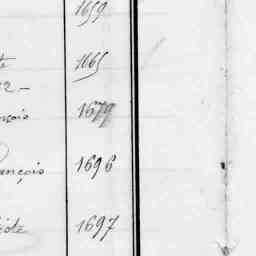 1659
1665
2 -
nçois 1679
ançois 1696
1697